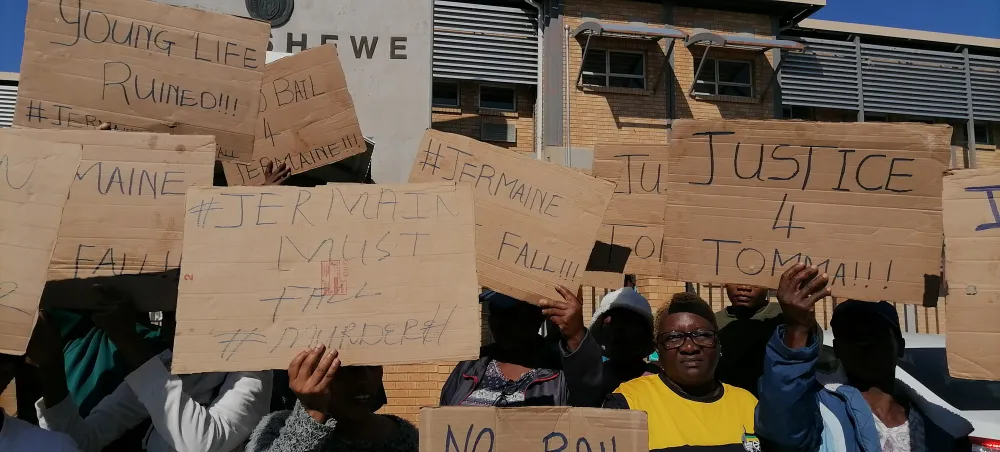 YOUNG LIFE
RUINED!!!
SHEWE
BAIL
4
JERMAINE!!!
MAINE
FALL!
#JERMAIN
MUST
FALL
#MURDER#
#JERMAINE
FALL!!!
JU
TO
JUSTICE
4
TOMMA!!!
NO BAIL